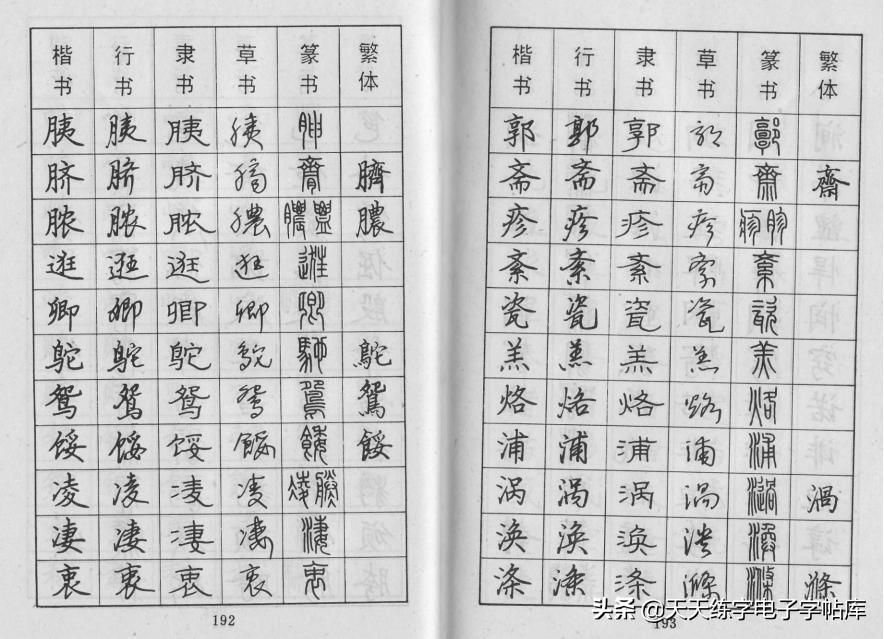 楷书 行书 隶书 草书 篆书 繁体
胰 胰 胰 胰 胰
脐 脐 脐 脐 脐 臍
脓 脓 脓 膿 膿 膿
逛 逛 逛 逛 逛
卿 卿 卿 卿 卿
鸵 鸵 鸵 鸵 鸵 鴕
鸳 鸳 鸳 鸳 鴛 鴛
馁 馁 馁 馁 餒 餒
凌 凌 凌 凌 凌
凄 凄 凄 凄 凄
衷 衷 衷 衷 衷
192
楷书 行书 隶书 草书 篆书 繁体
郭 郭 郭 郭 郭
斋 斋 斋 斋 齋 齋
疹 疹 疹 疹 疹
紊 紊 紊 紊 紊
瓷 瓷 瓷 瓷 瓷
羔 羔 羔 羔 羔
烙 烙 烙 烙 烙
浦 浦 浦 浦 浦
涡 涡 涡 涡 渦 渦
涣 涣 涣 涣 涣
涤 涤 涤 滌 滌 滌
193
头条 @天天练字电子字帖库